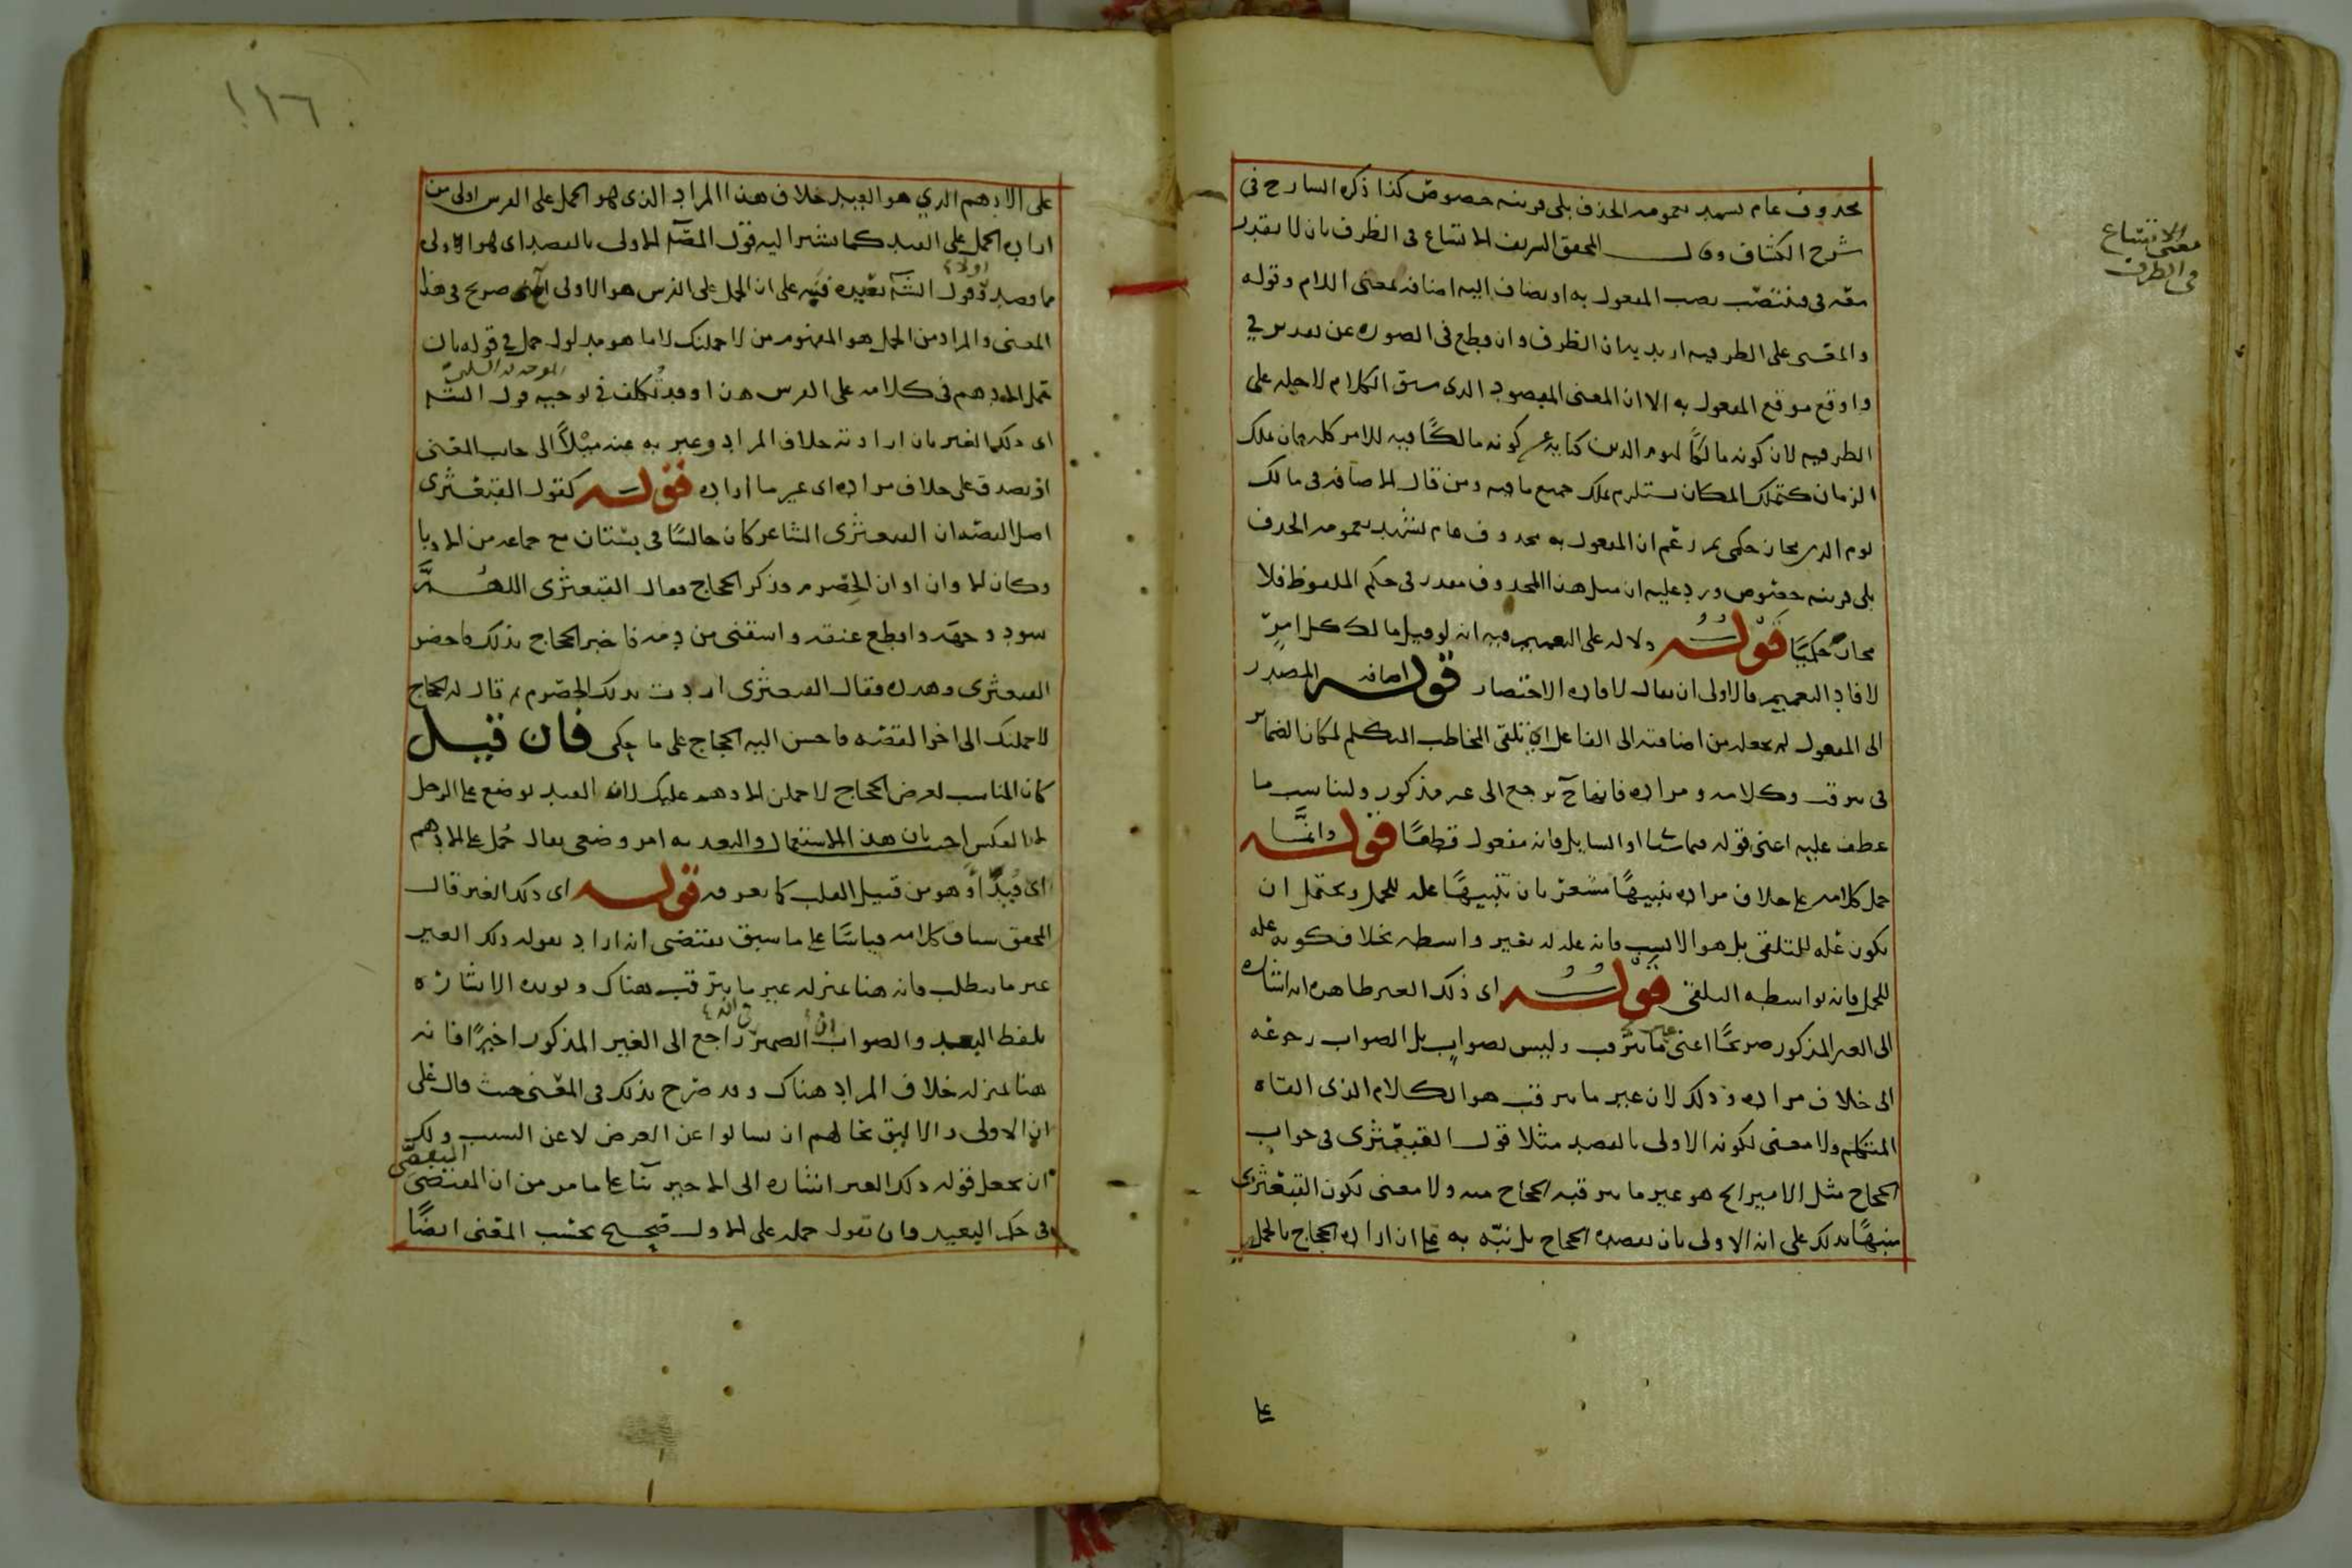 محذوف عام يشهد بعمومه الحذف بلى قرينة خصوص كذا ذكره الشارح في
شرح الكشاف وقال المحقق الشريف الاتساع في الظرف بان لا يقدر
معه في فينتصب نصب المفعول به او يضاف اليه اضافة بمعنى اللام وقوله
والمعنى على الظرفية اريد به ان الظرف وان قطع في الصورة عن تقدير في
واوقع موقع المفعول به الا ان المعنى المقصود الذي سيق الكلام لاجله على
الظرفية لان كونه مالكا ليوم الدين كناية عن كونه مالكا فيه للامر كله فان تملك
الزمان كتملك المكان يستلزم تملك جميع ما فيه ومن قال الاضافة في مالك
يوم الدين مجاز حكمي ثم زعم ان المفعول به محذوف عام يشهد بعمومه الحذف
بلى قرينة خصوص ورد عليه ان مثل هذا المحذوف مقدر في حكم الملفوظ فلا
مجاز حكميا قوله دلالة على التعميم فيه انه لو قيل مالك كل امر
لافاد التعميم فالاولى ان يقال لافادة الاختصار قوله اضافة المصدر
الى المفعول لم يجعله من اضافته الى الفاعل اي تلقي المخاطب المتكلم لمكان الضمائر
في يترقب وكلامه ومراده فانها ترجع الى غير مذكور وليناسب ما
عطف عليه اعني قوله فيما سيا او السايل فانه مفعول قطعا قوله وانما
حمل كلامه على خلاف مراده تنبيها مشعر بان تنبيها علة للحمل ويحتمل ان
يكون علة للتلقي بل هو الانسب فانه علة له بغير واسطة بخلاف كونه علة
للحمل فانه بواسطة التلقي قوله اي ذلك الغير ظاهره انه اشارة
الى الغير المذكور صريحا اعني غير ما يترقب وليس بصواب بل الصواب رجوعه
الى خلاف مراده وذلك لان غير ما يترقب هو الكلام الذي القاه
المتكلم ولا معنى لكونه الاولى بالقصد مثلا قول القبعثرى في جواب
الحجاج مثل الامير الخ هو غير ما يترقبه الحجاج منه ولا معنى لكون القبعثرى
منبها بذلك على انه الاولى بان يقصده الحجاج بل نبه به على ان اراده الحجاج بالحمل
على
معنى الاتساع
في الظرف
١١٦
على الادهم الذي هو القيد خلاف هذا المراد الذي هو الحمل على الفرس اولى من
اراده الحمل على القيد كما يشير اليه قول المصنف الاولى بالقصد اى هو الاولى
مما قصد وقول الش بعيده فنبه على ان الحمل على الفرس هو الاولى صريح في هذا
المعنى والمراد من الحمل هو المفهوم من لاحملنك لا ما هو مدلول حمل في قوله بان
حمل الادهم في كلامه على الفرس هذا وقد تكلف في توجيه قول الش
اى ذلك الغير بان اراد به خلاف المراد وعبر به عنه ميلا الى جانب المعنى
اذ يصدق على خلاف مراده اى غير ما اراده قوله كقول القبعثرى
اصل القصة ان القبعثرى الشاعر كان جالسا في بستان مع جماعة من الادبا
وكان الاوان اوان الحصرم فذكر الحجاج فقال القبعثرى اللهم
سود وجهه واقطع عنقه واسقني من دمه فاخبر الحجاج بذلك فاحضر
القبعثرى وهدده فقال القبعثرى اردت بذلك الحصرم ثم قال له الحجاج
لاحملنك الى اخر القصة فاحسن اليه الحجاج على ما حكى فان قيل
كان المناسب لغرض الحجاج لاحملن الادهم عليك لان القيد يوضع على الرجل
لا بالعكس اجيب بان هذا الاستعمال والتعديه امر وضعي يقال حمل على الادهم
اى قيد او هو من قبيل القلب كما تعرفه قوله اى ذلك الغير قال
المحقق سياق كلامه قياسا على ما سبق يقتضى انه اراد بقوله ذلك الغير
غير ما يتطلب فانه هنا بمنزلة غير ما يترقب هناك ويؤيده الاشارة
بلفظ البعيد والصواب ان الضمير راجع الى الغير المذكور اخيرا فانه
هنا بمنزلة خلاف المراد هناك وقد صرح بذلك في المعنى حيث قال على
ان الاولى والاليق بحالهم ان يسالوا عن الغرض لا عن السبب ولك
ان تجعل قوله ذلك الغير اشارة الى الاخير بنا على ما مر من ان المقتضى
في حكم البعيد وان تقول حمله على الاول صحيح بحسب المعنى ايضا